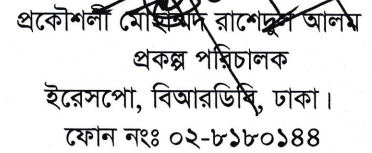 প্রকৌশলী মোহাম্মদ রাশেদুল আলম
প্রকল্প পরিচালক
ইরেসপো, বিআরডিবি, ঢাকা।
ফোন নংঃ ০২-৮১৮০১৪৪